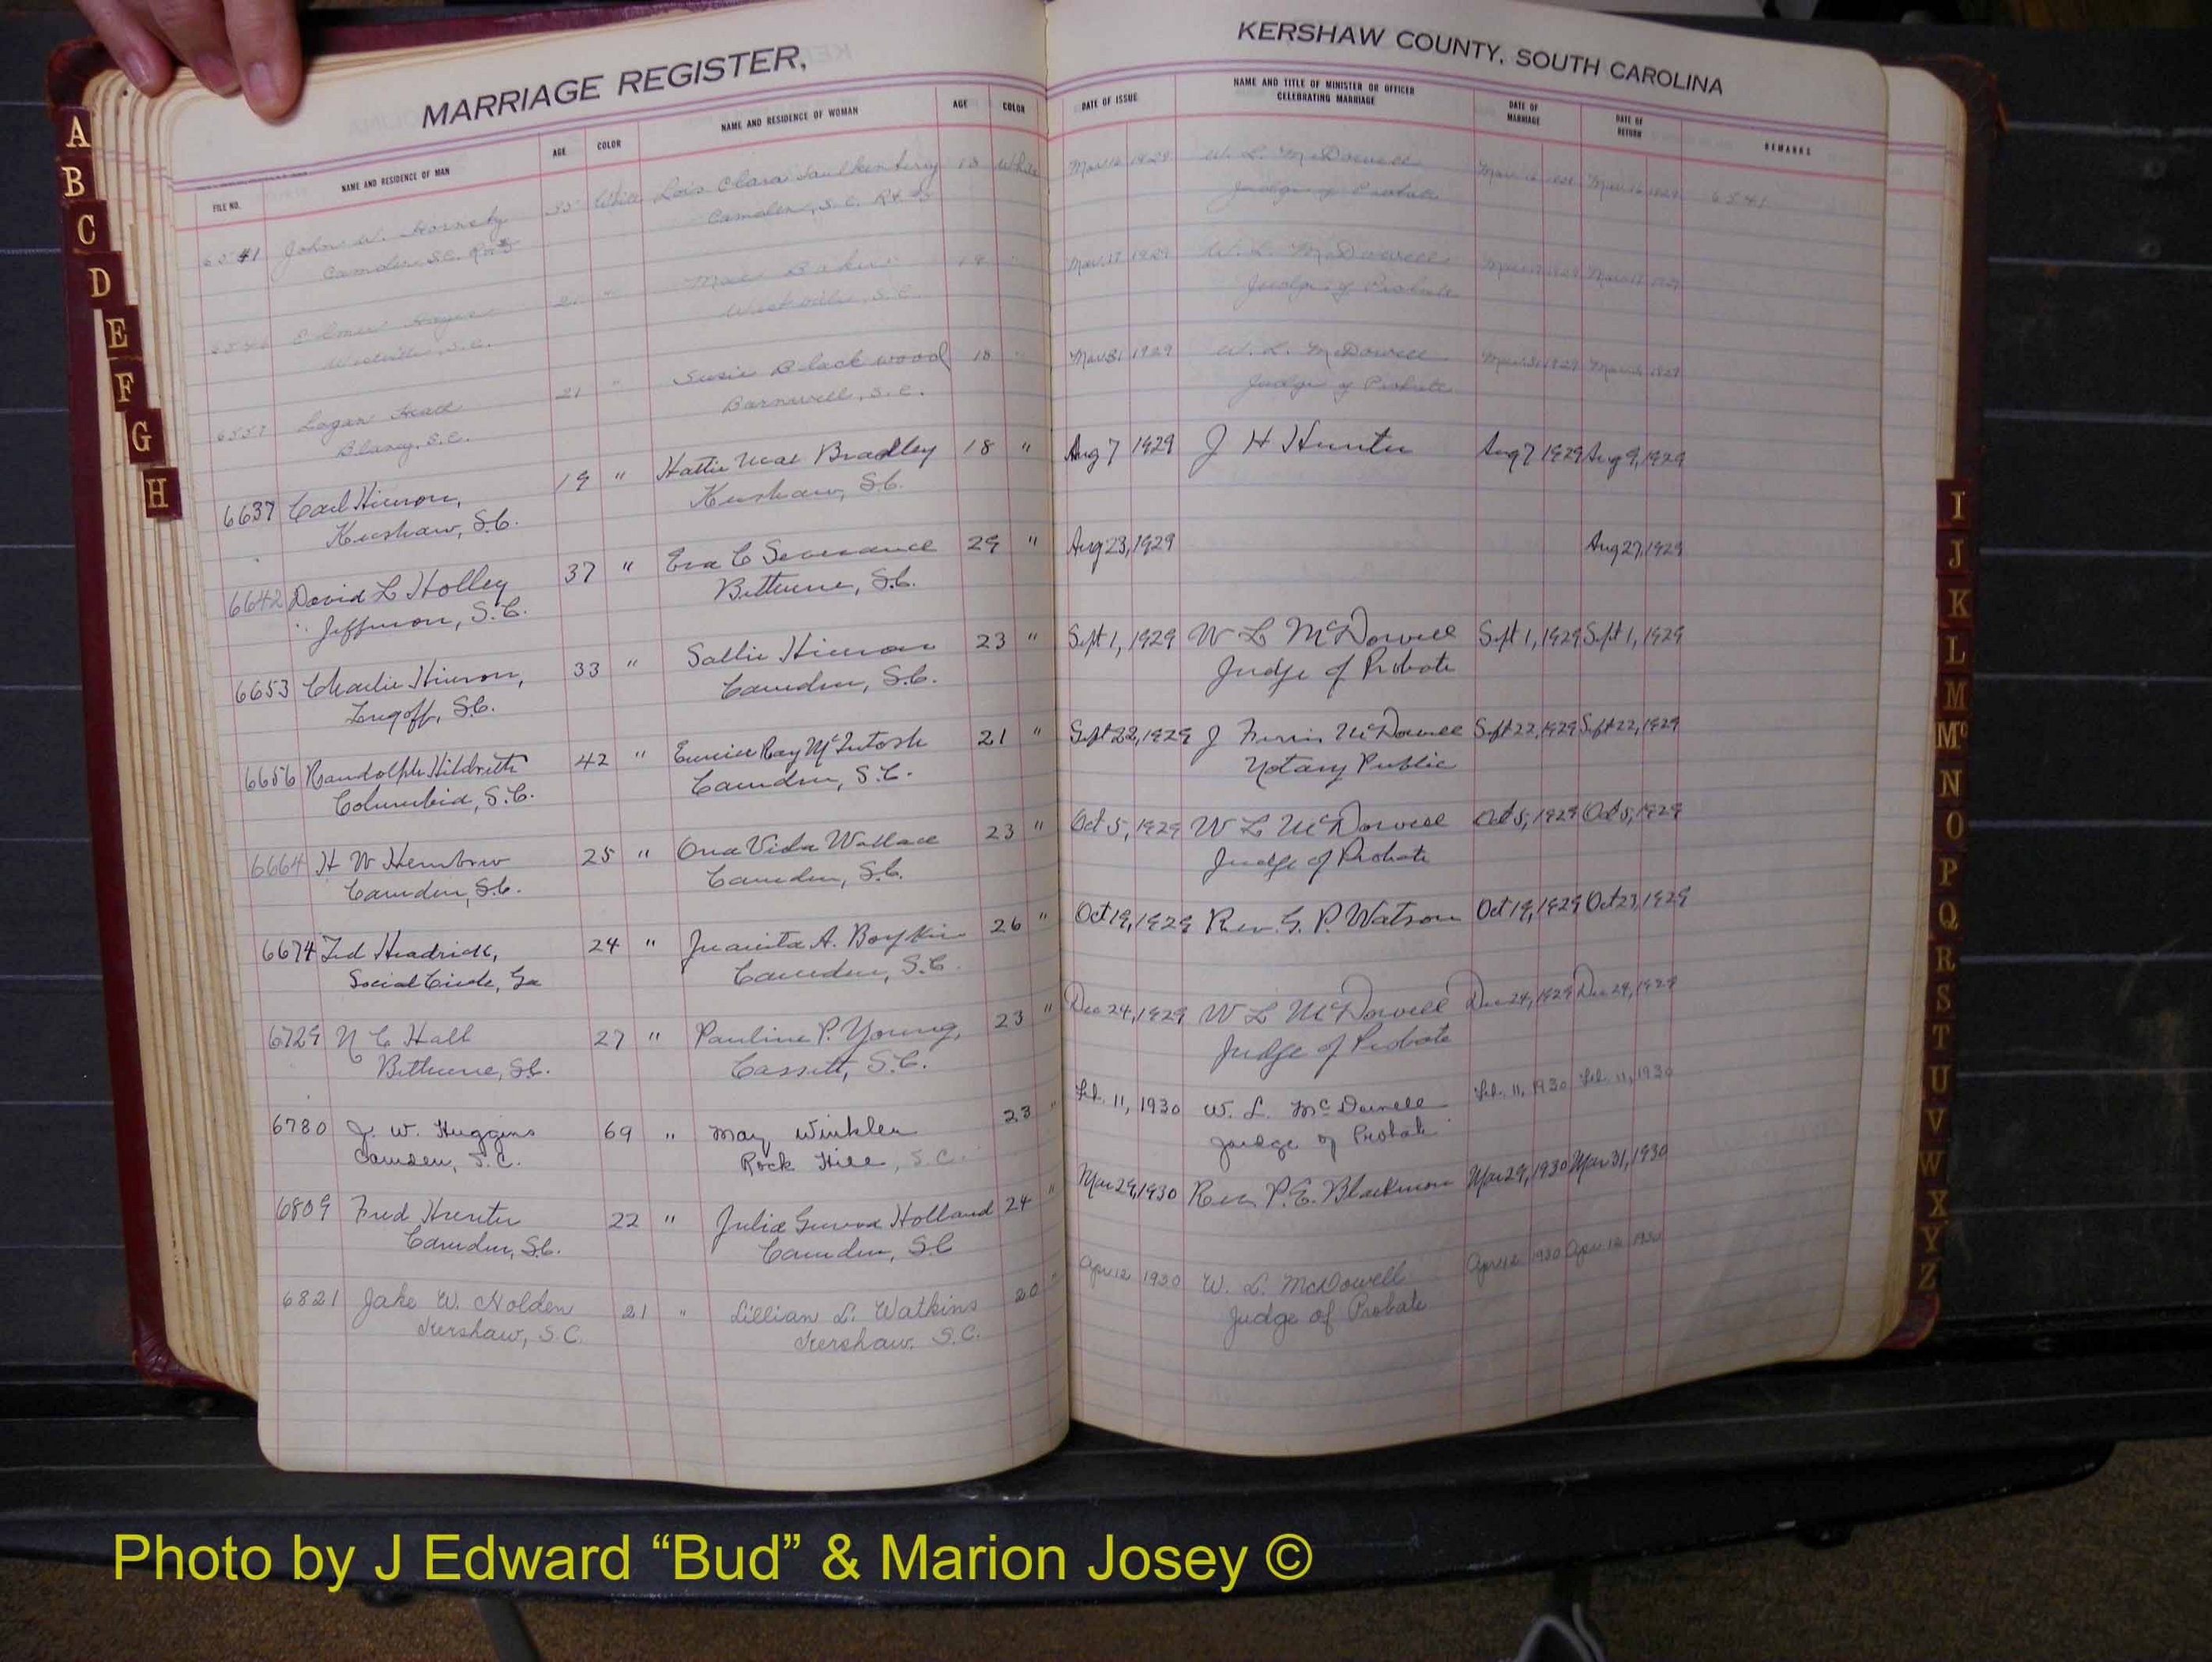 MARRIAGE REGISTER,
KERSHAW COUNTY, SOUTH CAROLINA
FILE NO. NAME AND RESIDENCE OF MAN AGE COLOR NAME AND RESIDENCE OF WOMAN AGE COLOR DATE OF ISSUE NAME AND TITLE OF MINISTER OR OFFICER CELEBRATING MARRIAGE DATE OF MARRIAGE DATE OF RETURN REMARKS
6541 John W. Hornsby White Lois Clara Faulkenberry 18 White Mar 16 1929 W. L. McDowell Mar 16 Mar 16 1929 6541
Camden, S.C. Camden, S.C. Judge of Probate
Elmer 21 " Mae Baker 18 " Mar 17 1929 W. L. McDowell Mar 17 1929 Mar 17 1929
Westville, S.C. Westville, S.C. Judge of Probate
6557 Logan Hall 21 " Susie Blackwood 18 " Mar 31 1929 W. L. McDowell Mar 31 1929 Mar 1929
Blaney, S.C. Barnwell, S.C. Judge of Probate
6637 Carl Hinson, 19 " Hattie Mae Bradley 18 " Aug 7 1929 J H Hunter Aug 7 1929 Aug 9, 1929
Kershaw, S.C. Kershaw, S.C.
6642 David L Holley 37 " Eva C Severance 29 " Aug 23, 1929 Aug 27, 1929
Jefferson, S.C. Bethune, S.C.
6653 Charlie Hinson, 33 " Sallie Hinson 23 " Sept 1, 1929 W L McDowell Sept 1, 1929 Sept 1, 1929
Lugoff, S.C. Camden, S.C. Judge of Probate
6656 Randolph Hildreth 42 " Eunice Ray McIntosh 21 " Sept 22, 1929 J McDowell Sept 22, 1929 Sept 22, 1929
Columbia, S.C. Camden, S.C. Notary Public
6664 H W 25 " Ona Vida Wallace 23 " Oct 5, 1929 W L McDowell Oct 5, 1929 Oct 5, 1929
Camden, S.C. Camden, S.C. Judge of Probate
6674 Ted Headrick, 24 " Juanita A. Boykin 26 " Oct 19, 1929 Rev. G. P. Watson Oct 19, 1929 Oct 23, 1929
Social Circle, Ga Camden, S.C.
6729 N C Hall 27 " Pauline P. Young, 23 " Dec 24, 1929 W L McDowell Dec 24, 1929 Dec 24, 1929
Bethune, S.C. Cassatt, S.C. Judge of Probate
6780 J. W. Huggins 69 " May Winkler 23 " Feb. 11, 1930 W. L. McDowell Feb. 11, 1930 Feb. 11, 1930
Camden, S.C. Rock Hill, S.C. Judge of Probate
6809 Fred Hunter 22 " Julia Holland 24 " Mar 29, 1930 Rev P. E. Blackmon Mar 29, 1930 Mar 31, 1930
Camden, S.C. Camden, S.C
6821 Jake W. Holden 21 " Lillian L. Watkins 20 " Apr 12 1930 W. L. McDowell Apr 12 1930 Apr 12 1930
Kershaw, S.C. Kershaw, S.C. Judge of Probate
A
B
C
D
E
F
G
H
I
J
K
L
M
Mc
N
O
P
Q
R
S
T
U
V
W
X
Y
Z
Photo by J Edward “Bud” & Marion Josey ©